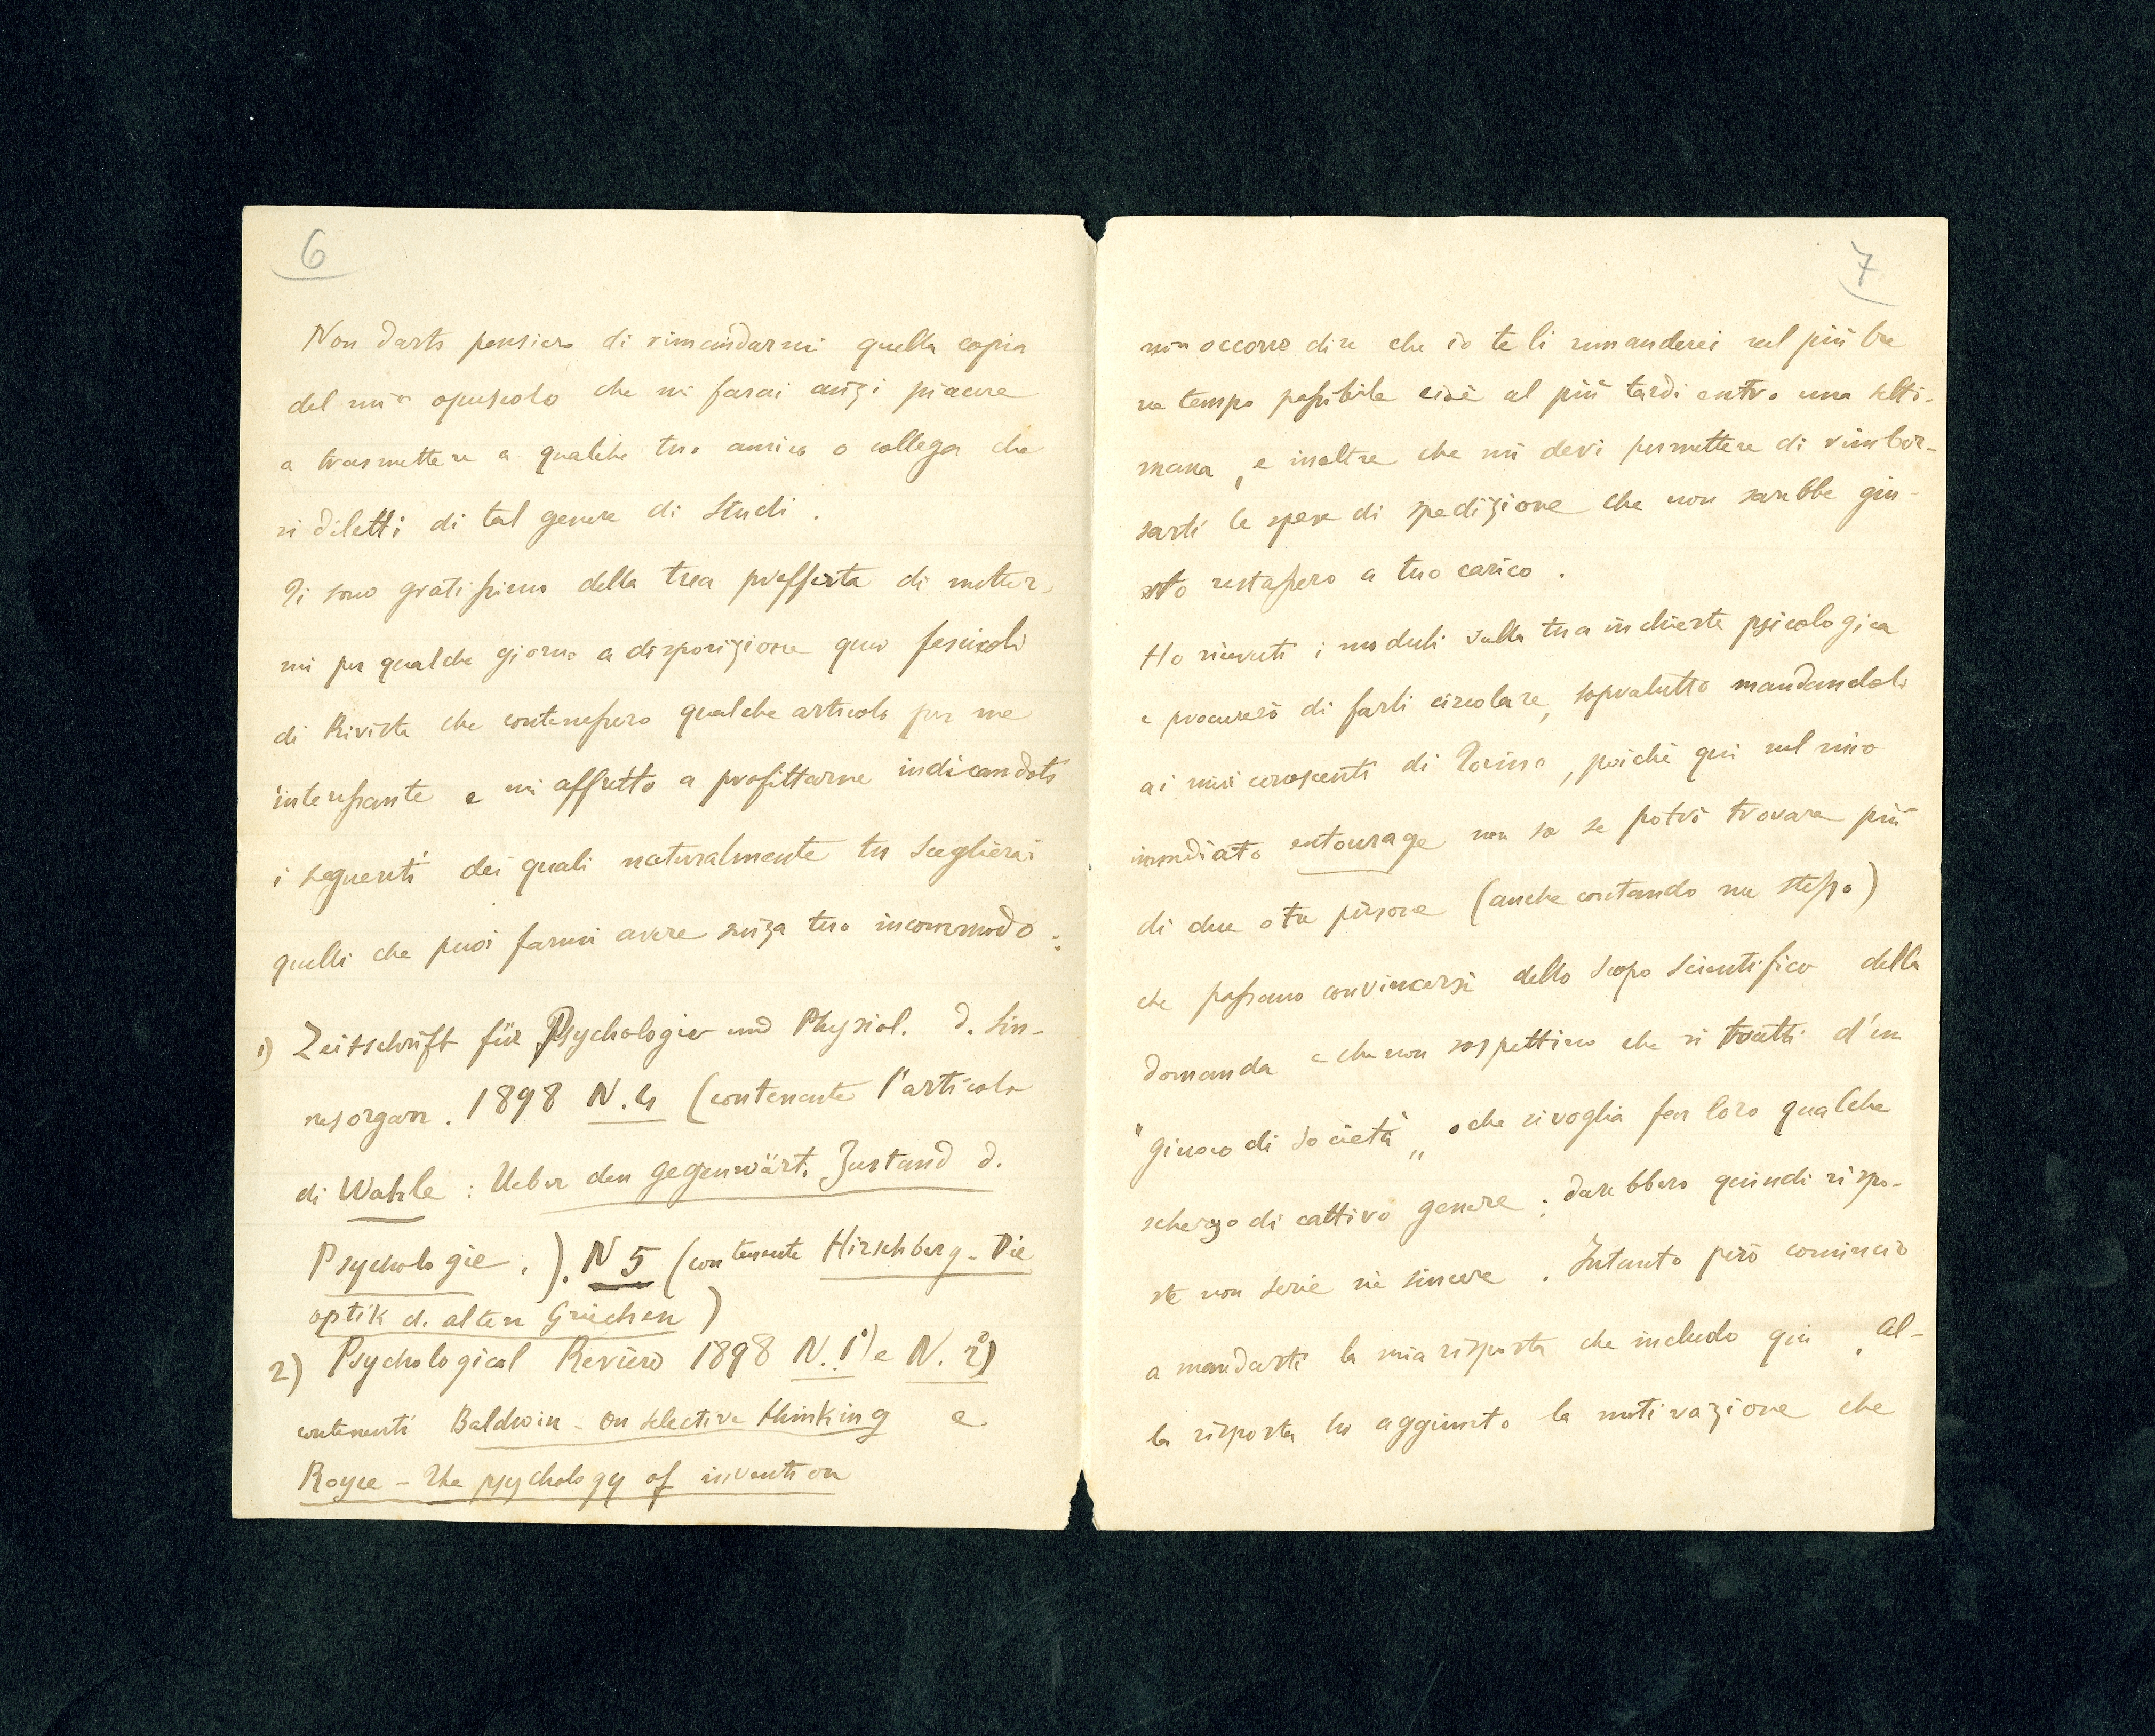 6
Non darti pensiero di rimandarmi quella copia
del mio opuscolo che mi farai anzi piacere
a trasmettere a qualche tuo amico o collega che
si diletti di tal genere di studi.
Ti sono gratissimo della tua profferta di metter-
mi per qualche giorno a disposizione quei fascicoli
di Rivista che contenessero qualche articolo per me
interessante e mi affretto a profittarne indicandoti
i seguenti dei quali naturalmente tu sceglierai
quelli che puoi farmi avere senza tuo incommodo:
1) Zeitschrift für Psychologie und Physiol. d. Sin-
nesorgan. 1898 N. 4 (contenente l'articolo
di Wahle: Ueber den gegenwärt. Zustand d.
Psychologie.). N 5 (contenente Hirschberg - Die
optik d. alten Griechen)
2) Psychological Review 1898 N. 1°) e N. 2°)
contenenti Baldwin - On selective thinking e
Royce - The psychology of invention
7
non occorre dire che io te li rimanderei nel più bre
ve tempo possibile cioè al più tardi entro una setti-
mana, e inoltre che mi devi permettere di rimbor-
sarti le spese di spedizione che non sarebbe giu-
sto restassero a tuo carico.
Ho ricevuti i moduli sulla tua inchiesta psicologica
e procurerò di farli circolare, sopratutto mandandoli
ai miei conoscenti di Torino, poichè qui nel mio
immediato entourage non so se potrò trovare più
di due o tre persone (anche contando me stesso)
che possano convincersi dello scopo scientifico della
domanda e che non sospettino che si tratti d'un
"giuoco di società„ o che si voglia far loro qualche
scherzo di cattivo genere; darebbero quindi rispo-
ste non serie nè sincere. Intanto però comincio
a mandarti la mia risposta che includo qui. Al-
la risposta ho aggiunto la motivazione che